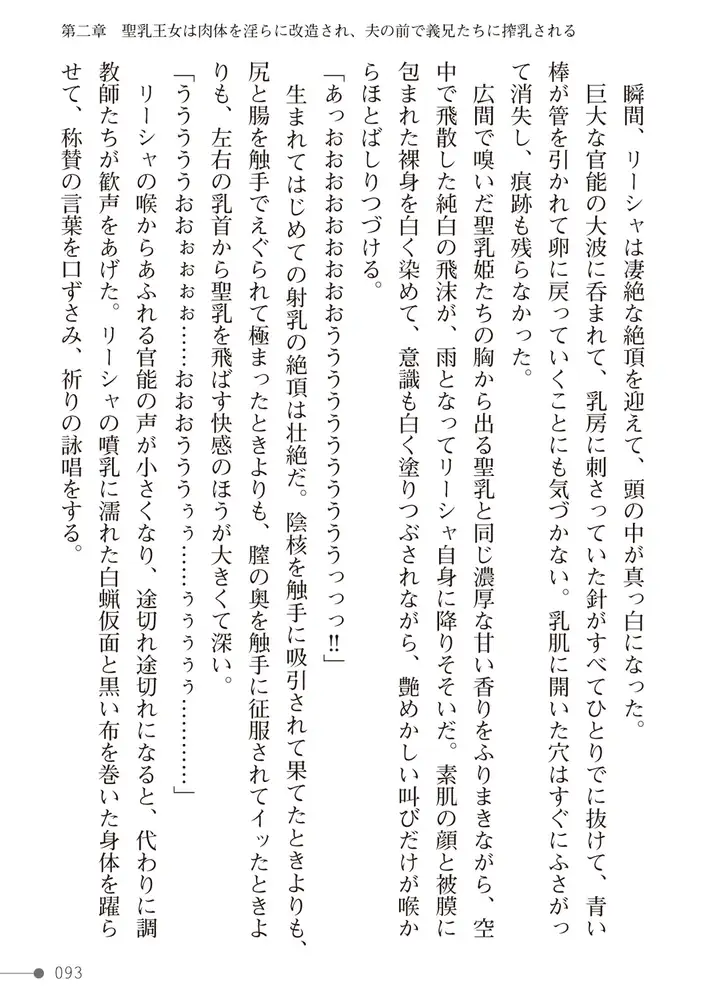 第二章　聖乳王女は肉体を淫らに改造され、夫の前で義兄たちに搾乳される
瞬間、リーシャは凄絶な絶頂を迎えて、頭の中が真っ白になった。
巨大な官能の大波に呑まれて、乳房に刺さっていた針がすべてひとりでに抜けて、青い
棒が管を引かれて卵に戻っていくことにも気づかない。乳肌に開いた穴はすぐにふさがっ
て消失し、痕跡も残らなかった。
広間で嗅いだ聖乳姫たちの胸から出る聖乳と同じ濃厚な甘い香りをふりまきながら、空
中で飛散した純白の飛沫が、雨となってリーシャ自身に降りそそいだ。素肌の顔と被膜に
包まれた裸身を白く染めて、意識も白く塗りつぶされながら、艶めかしい叫びだけが喉か
らほとばしりつづける。
「あっおおおおおおおおおうううううううううううっっっ!!」
生まれてはじめての射乳の絶頂は壮絶だ。陰核を触手に吸引されて果てたときよりも、
尻と腸を触手でえぐられて極まったときよりも、膣の奥を触手に征服されてイッたときよ
りも、左右の乳首から聖乳を飛ばす快感のほうが大きくて深い。
「うううううおおぉぉぉ……おおおうううぅぅ……ぅぅぅぅぅ…………」
リーシャの喉からあふれる官能の声が小さくなり、途切れ途切れになると、代わりに調
教師たちが歓声をあげた。リーシャの噴乳に濡れた白蝋仮面と黒い布を巻いた身体を躍ら
せて、称賛の言葉を口ずさみ、祈りの詠唱をする。
093